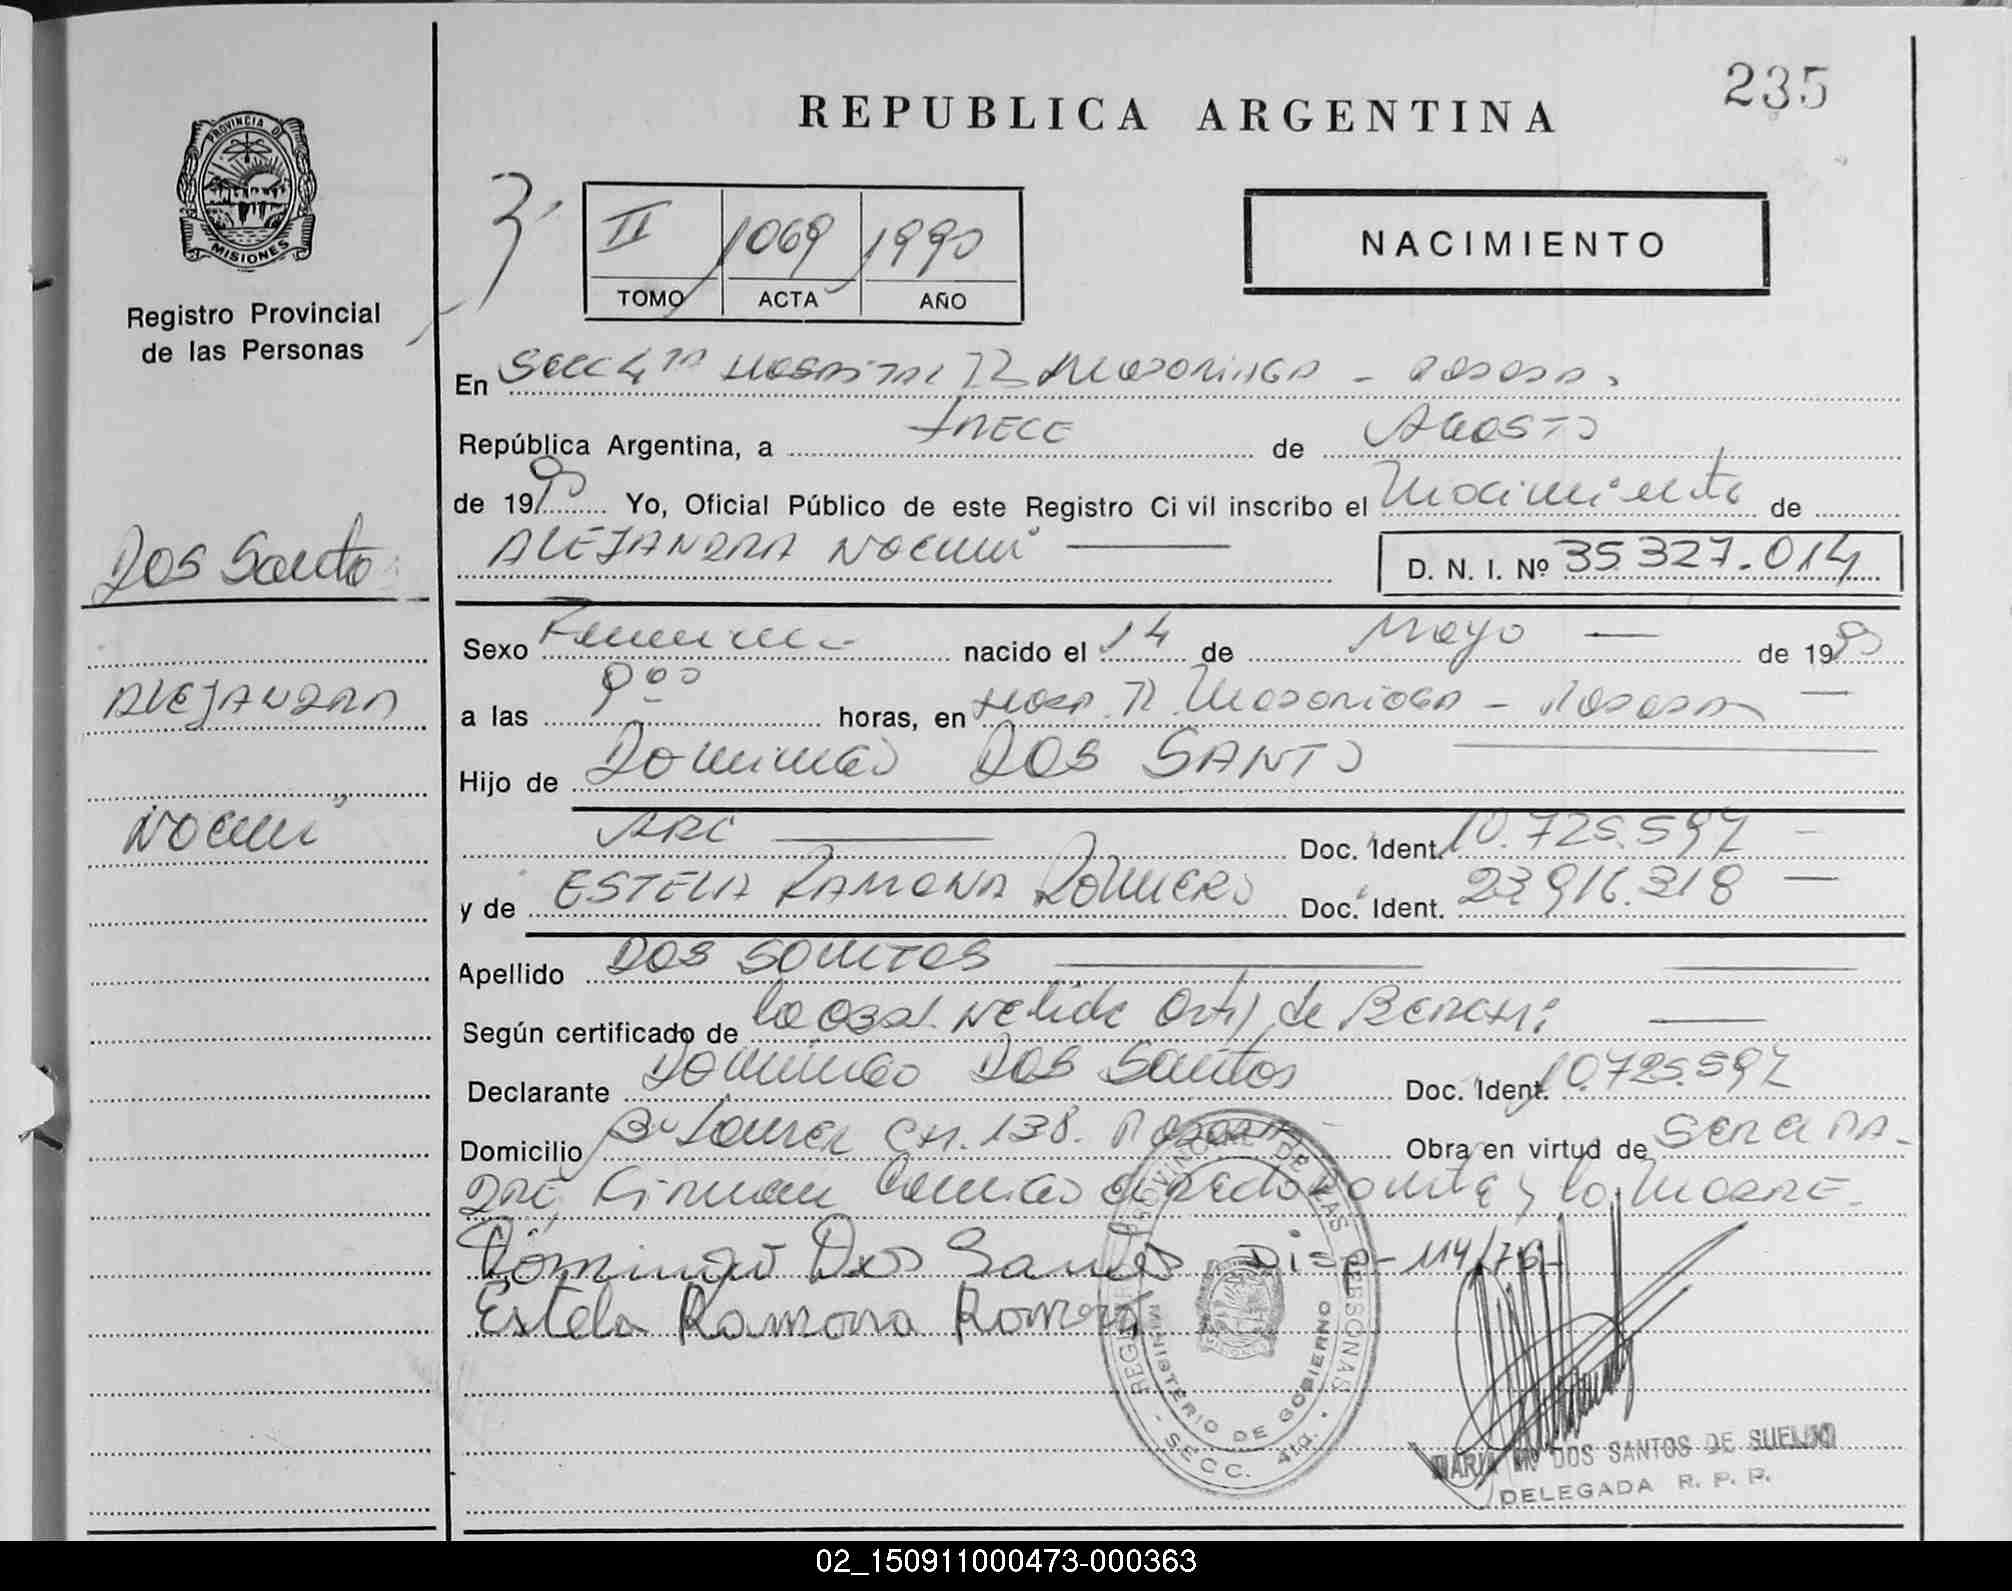 235
REPUBLICA ARGENTINA
PROVINCIA D
MISIONES
Registro Provincial
de las Personas
II 1069 1990
TOMO ACTA AÑO
NACIMIENTO
En Secc 4ta Hospital R Madariaga - Posadas
República Argentina, a trece de Agosto
de 1990 Yo, Oficial Público de este Registro Civil inscribo el Nacimiento de
ALEJANDRA NOEMI
D. N. I. Nº 35 327.014
Dos Santo
ALEJANDRA
NOEMI
Sexo Femenino nacido el 14 de Mayo de 1990
a las 9 00 horas, en Hosp. R. Madariaga - Posadas
Hijo de Domingo DOS SANTO
ARG Doc. Ident. 10.725.597
y de ESTELA RAMONA ROMERO Doc. Ident. 23 916.318
Apellido DOS SANTOS
Según certificado de la obst. Nelida de
Declarante Domingo DOS Santos Doc. Ident. 10.725.597
Domicilio CH. 138. Posadas Obra en virtud de ser el PA-
DRE, Firman conmigo el declarante y la MADRE.
Domingo Dos Santos Disp- 114/76
Estela Ramona Romero
REGISTRO PROVINCIAL DE LAS PERSONAS
MINISTERIO DE GOBIERNO
- SECC. 4ta. -
MARIA DOS SANTOS DE
DELEGADA R. P. P.
02_150911000473-000363